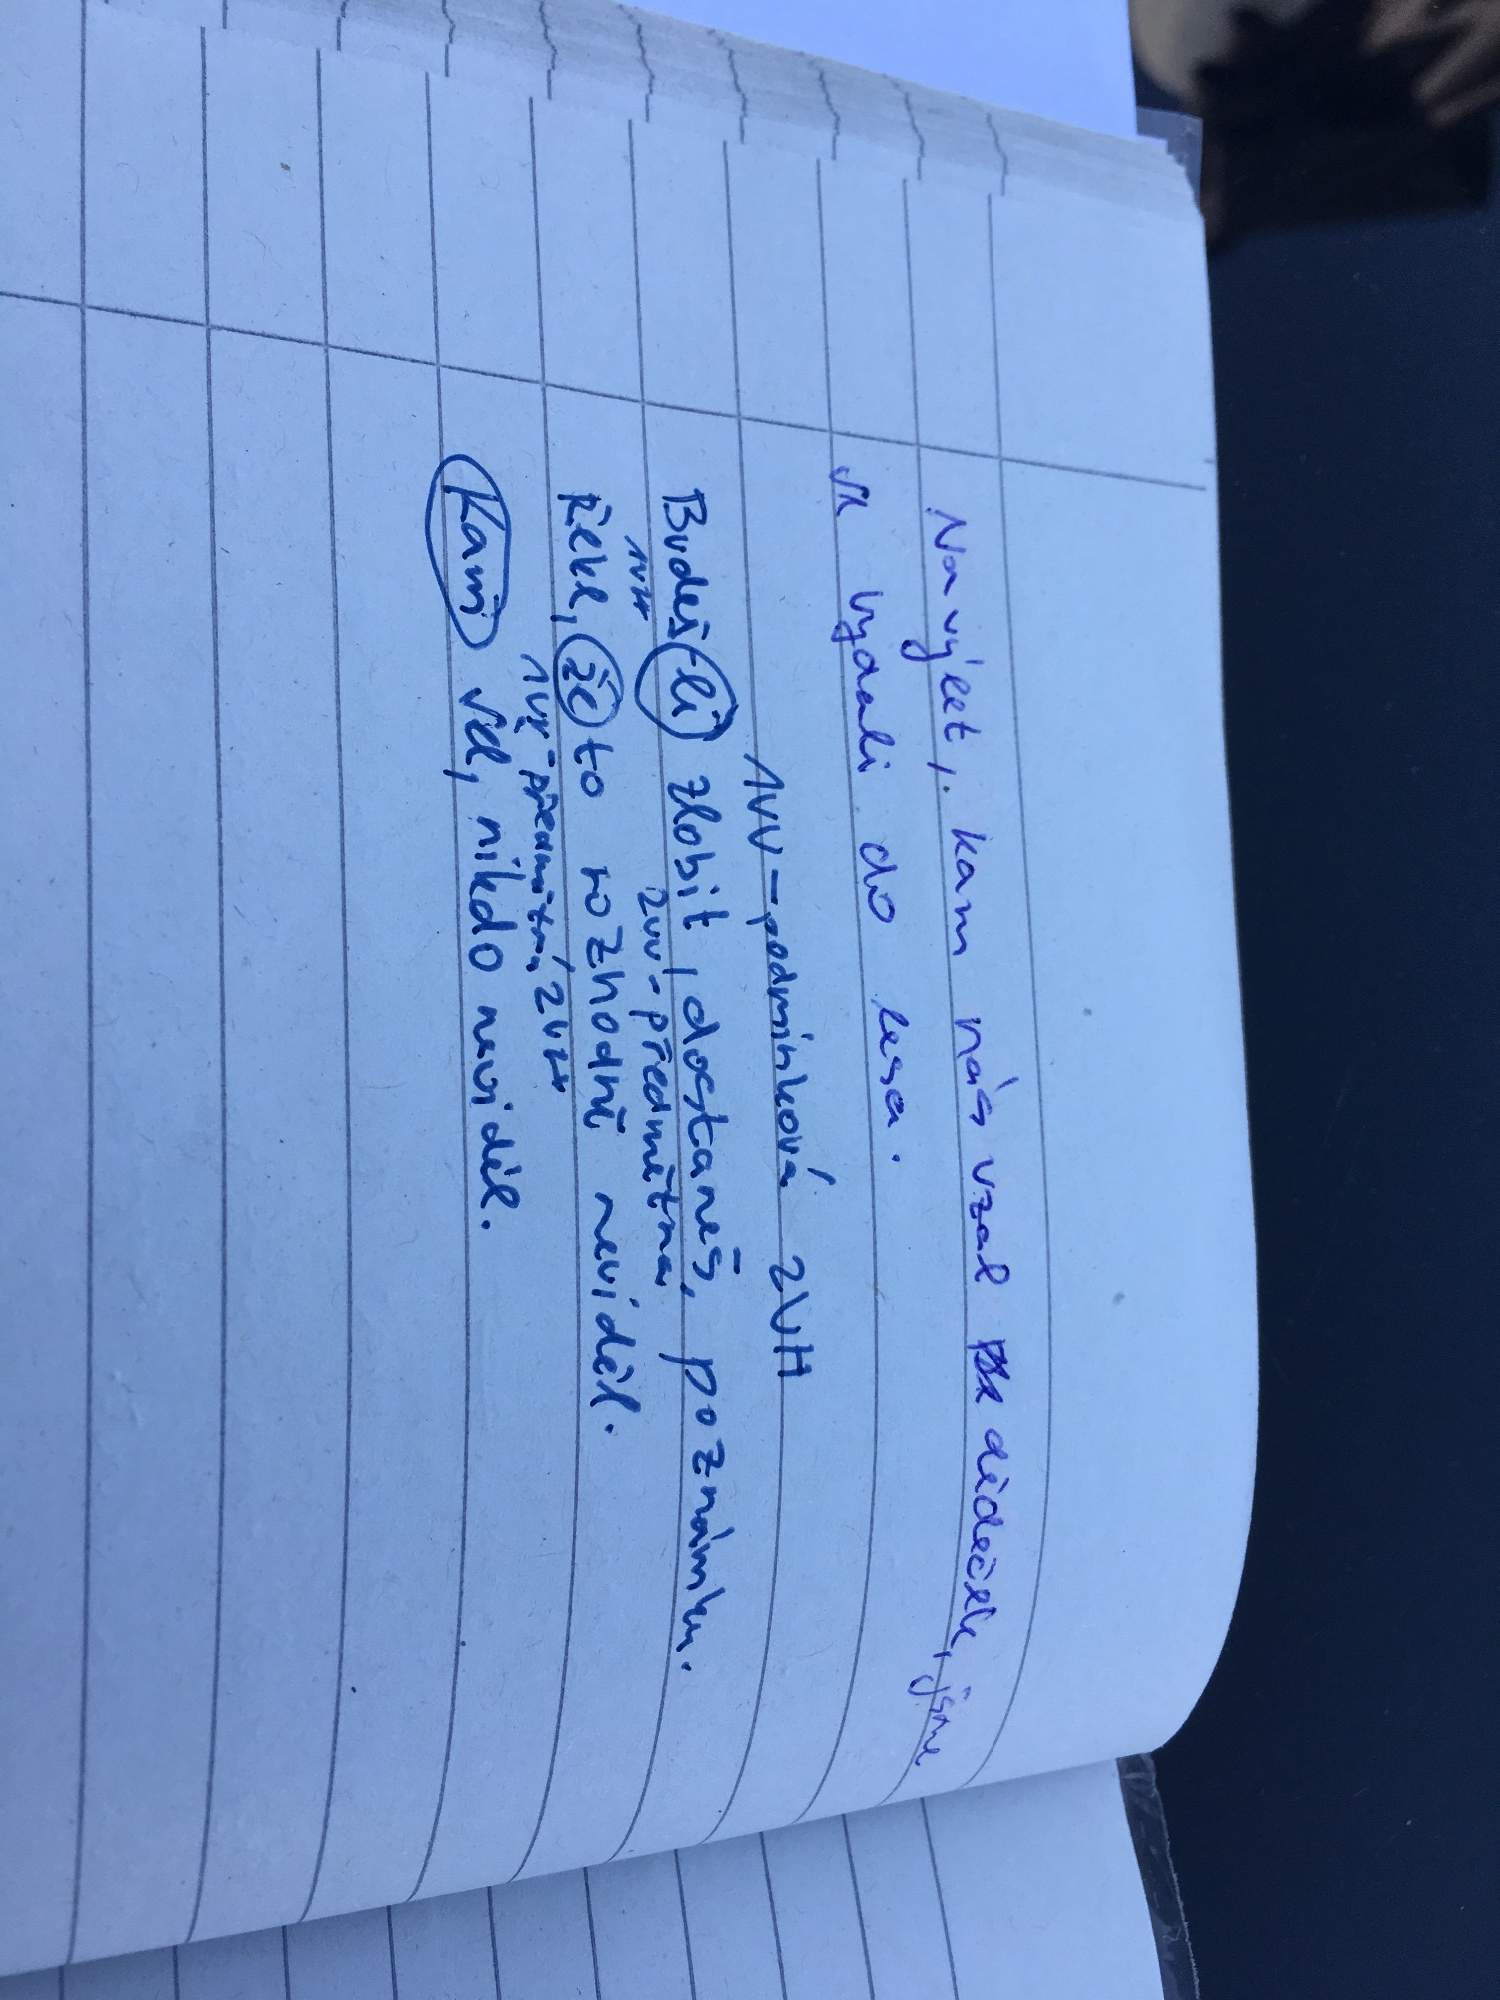 Na výlet, kam nás vzal dědeček, jsme
se vydali do lesa.
1VV - podmínková 2VH
Budeš-li zlobit, dostaneš, poznámku.
1VH 2VV - předmětna
Řekl, že to rozhodně neviděl.
1VV - předmětná 2VH
Kam šel, nikdo neviděl.